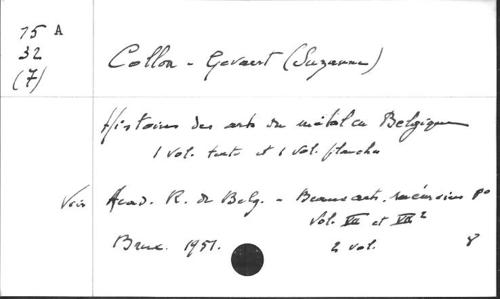 75 A
32
(7)
Collon - Gevaert (Suzanne)
Histoire des arts du métal en Belgique
1 vol. texte et 1 vol. planches
Voir Acad. R. de Belg. - Beaux arts, mémoires 8°
Vol. VII et VII²
Brux. 1951. 2 vol. 8